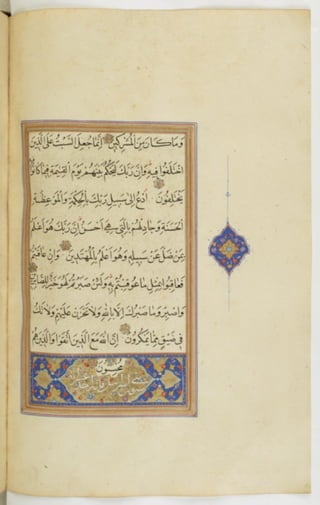 وَمَا كَانَ مِنَ الْمُشْرِكِينَ إِنَّمَا جُعِلَ السَّبْتُ عَلَى الَّذِينَ
اخْتَلَفُوا فِيهِ وَإِنَّ رَبَّكَ لَيَحْكُمُ بَيْنَهُمْ يَوْمَ الْقِيٰمَةِ فِيمَا كَانُوا
يَخْتَلِفُونَ ادْعُ إِلَى سَبِيلِ رَبِّكَ بِالْحِكْمَةِ وَالْمَوْعِظَةِ
الْحَسَنَةِ وَجَادِلْهُمْ بِالَّتِي هِيَ أَحْسَنُ إِنَّ رَبَّكَ هُوَ أَعْلَمُ
بِمَنْ ضَلَّ عَنْ سَبِيلِهِ وَهُوَ أَعْلَمُ بِالْمُهْتَدِينَ وَإِنْ عَاقَبْتُمْ
فَعَاقِبُوا بِمِثْلِ مَا عُوقِبْتُمْ بِهِ وَلَئِنْ صَبَرْتُمْ لَهُوَ خَيْرٌ لِلصَّابِرِينَ
وَاصْبِرْ وَمَا صَبْرُكَ إِلَّا بِاللَّهِ وَلَا تَحْزَنْ عَلَيْهِمْ وَلَا تَكُ
فِي ضَيْقٍ مِمَّا يَمْكُرُونَ إِنَّ اللَّهَ مَعَ الَّذِينَ اتَّقَوْا وَالَّذِينَ هُمْ
مُحْسِنُونَ